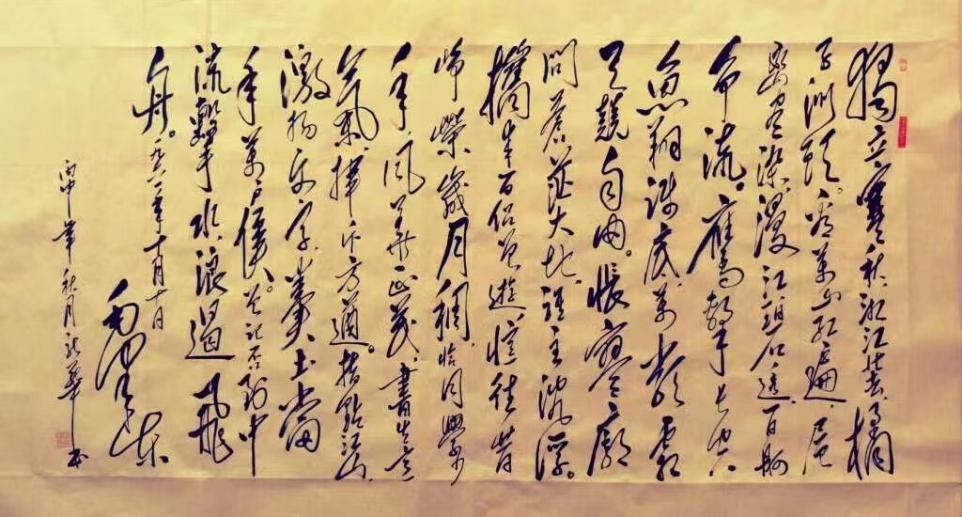 獨立寒秋湘江北去橘
子洲頭。看萬山紅遍,層
林尽染,漫江碧透,百舸
争流。鷹擊长空
魚翔浅底萬類霜
天競自由。悵寥廓
問蒼茫大地,谁主沉浮。
攜来百侣曾遊,憶往昔
崢嶸歲月稠,恰同學少
年,風華正茂,書生意
氣,揮斥方遒。指點江山,
激扬文字,糞土當
年萬户侯。曾記否到中
流擊水浪遏飛
舟。一九六一年十月十日
毛澤東
丙申年秋月華书